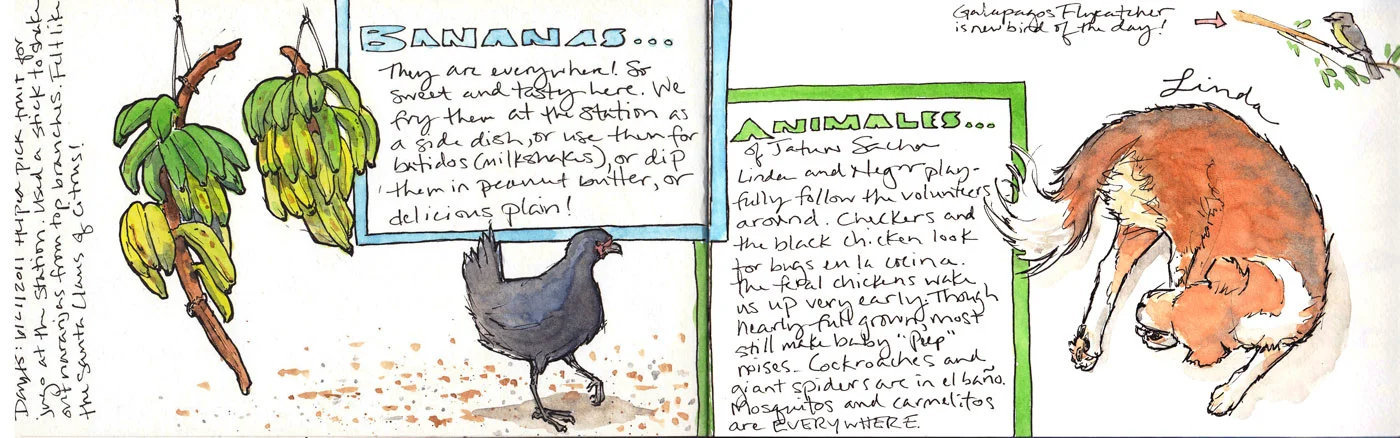 Day 15: 6/24/2011 Helped pick fruit for
jugo at the station. Used a stick to shake
out naranjas from top branches. Felt like
the Santa Claus of Citrus!
BANANAS...
They are everywhere! So
sweet and tasty here. We
fry them at the station as
a side dish, or use them for
batidos (milkshakes), or dip
them in peanut butter, or
delicious plain!
ANIMALES...
of Jatun Sacha
Linda and Negra play-
fully follow the volunteers
around. Checkers and
the black chicken look
for bugs en la cocina.
The feral chickens wake
us up very early. Though
nearly full grown, most
still make baby "Peep"
noises. Cockroaches and
giant spiders are in el baño.
Mosquitos and carmelitos
are EVERYWHERE.
Galapagos Flycatcher
is new bird of the day!
Linda